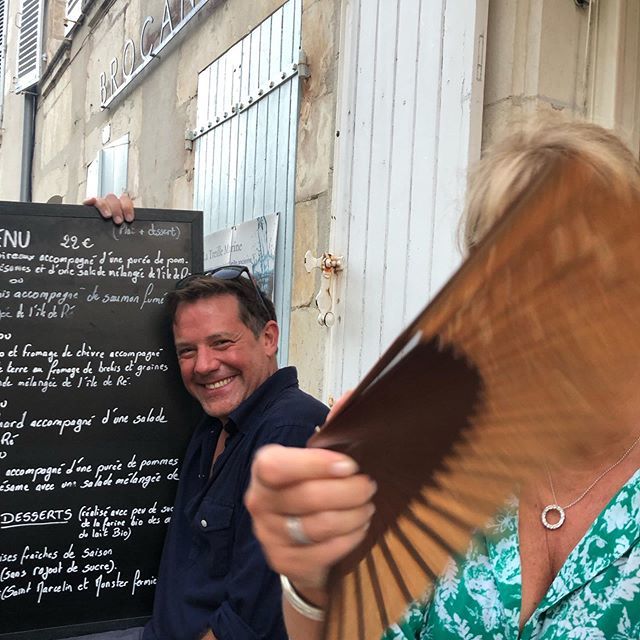 BROCAN
ENU 22 € (Plat + dessert)
accompagné d'une purée de pom-
et d'une salade mélangée de l'île de Ré
ou
accompagné de saumon fumé
de l'île de Ré
ou
et fromage de chèvre accompagné
terre au fromage de brebis et graines
mélangée de l'île de Ré.
accompagné d'une salade
Ré
accompagné d'une purée de pommes
sésame avec une salade mélangée de
DESSERTS (réalisé avec peu de suc
de la farine bio des œ
du lait Bio)
ises fraîches de saison
(sans rajout de sucre).
(Saint Marcelin et Monster fermie
La Treille Marine